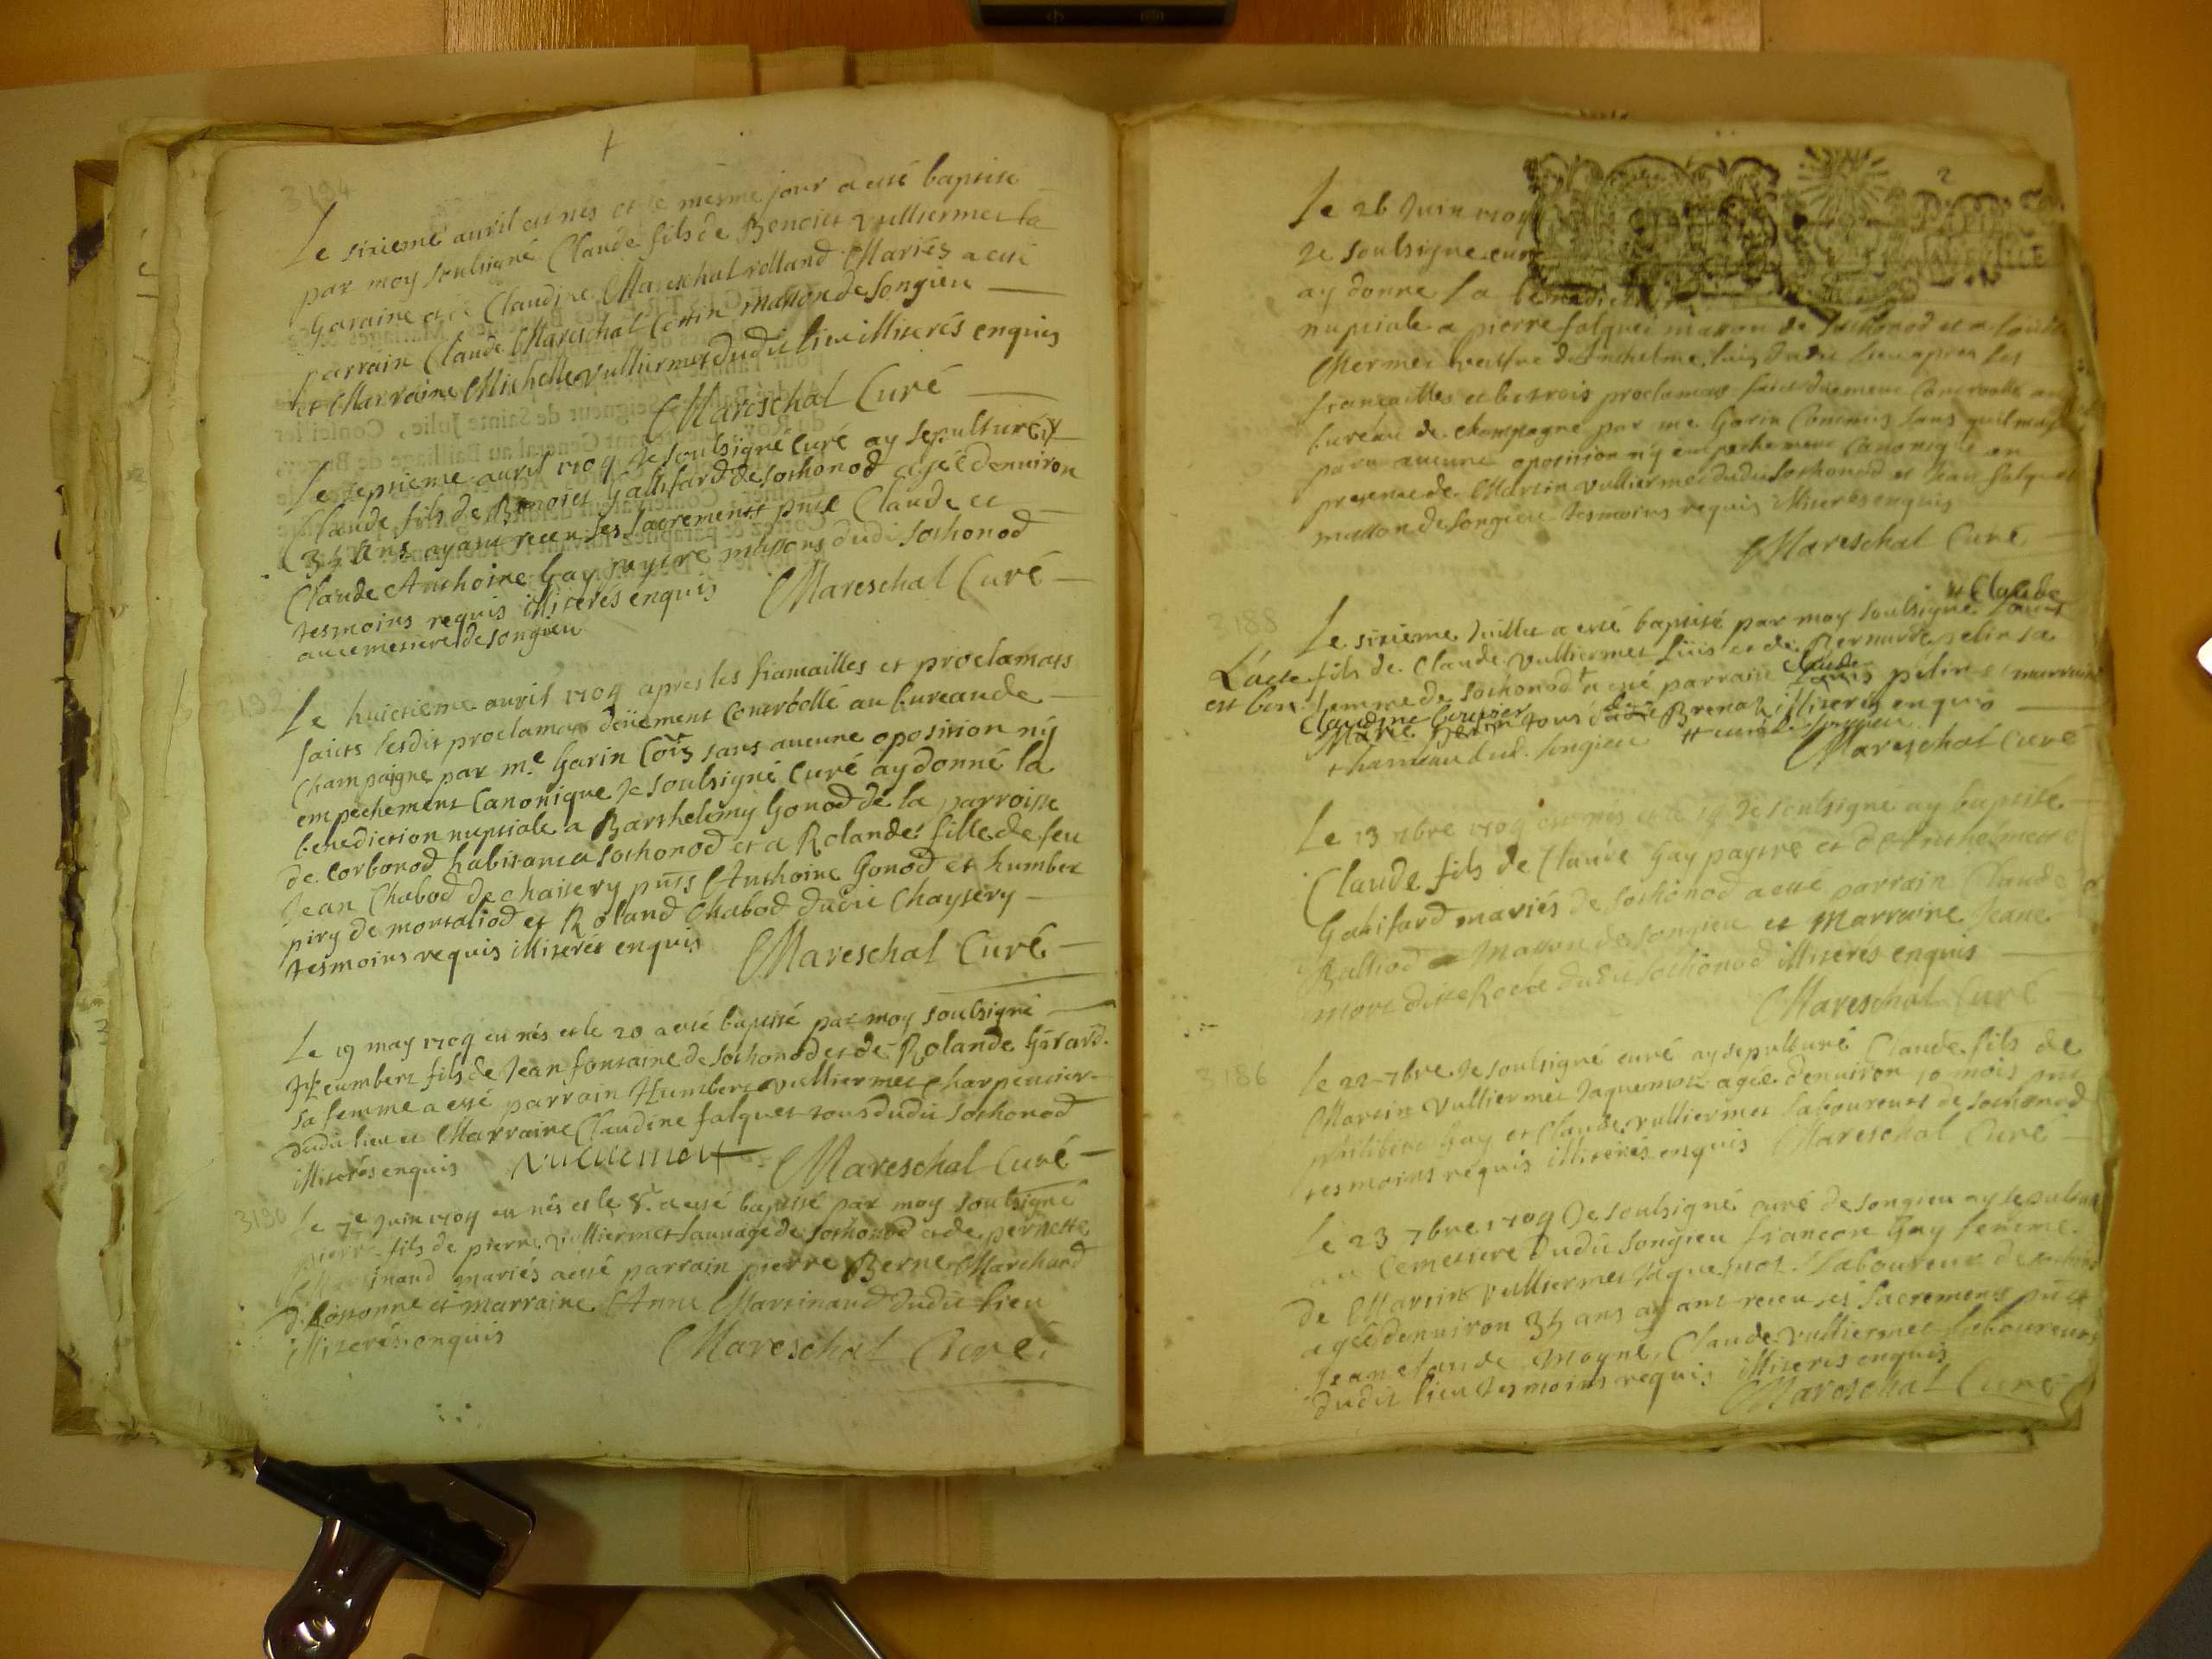 3194
Le sixieme auril est nés et le mesme jour a esté baptisé
par moy soulsigné Claude fils de Benoict Vulliermet la
Garaine et de Claudine Mareschal rolland Mariés a esté
parrain Claude Mareschal Cottin masson de Songieu
et Marraine Michelle Vulliermet dudit lieu illiterés enquis
Mareschal Curé
Le septieme auril 1709 Je soulsigné Curé ay sepulturé
Claude fils de Benoict Gallifard de Sothonod agée denuiron
35 Ans ayant receu les sacrements pnts Claude et
Claude Anthoine Gay paytre massons dudi Sothonod
tesmoins requis illiterés enquis Mareschal Curé
au cemetiere de Songieu
3192
Le huictieme auril 1709 apres les fiansailles et proclamats
faicts lesdits proclamats deüement Controollé au bureau de
Champaigne par me. Garin Cois sans aucune oposition ny
empechement Canonique Je soulsigné Curé ay donné la
benediction nuptiale a Barthelemy Gonod de la parroisse
de Corbonod habitant a Sothonod et a Rolande fille de feu
Jean Chabod de Chaisery pnts Anthoine Gonod et humbert
piry de montaliod et Roland Chabod dudit Chaysery
tesmoins requis illiterés enquis Mareschal Curé
Le 19 may 1709 est nés et le 20 a esté baptisé par moy soulsigné
Heumbert fils de Jean fontaine de Sothonod et de Rolande Girard
sa femme a esté parrain Humbert Vulliermet charpentier
dudit lieu et Marraine Claudine falquet tous dudit Sothonod
illiterés enquis Mareschal Curé
3190
Le 7e Juin 1709 est nés et le 8e a esté baptisé par moy soulsigné
pierre fils de pierre Vulliermet Sauuage de Sothonod et de pernette
Martinand mariés a esté parrain pierre Berne Marchand
et marraine Anne Martinand dudit lieu
illiterés enquis Mareschal Curé
2
Le 26 Juin 1709
Je soulsigné curé
ay donne la benediction
nuptiale a pierre falquet masson de Sothonod et a
Mermet veufve dudit lieu apres les
fiansailles et les trois proclamats faicts deüement Controollé au
bureau de champagne par me Garin Commis sans quil m'aye
paru aucune oposition ny empechement Canonique en
presence de Martin Vulliermet dudit Sothonod et Jean falquet
masson de Songieu tesmoins requis illiterés enquis
Mareschal Curé
3188
# Claude
Le sixieme Juillet a esté baptisé par moy soulsigné
L'acte fils de Claude Vulliermet et de Bernarde pelin sa
est bon. femme de Sothonod a esté parrain Claude pelin et marraine
Claudine tous de Brenaz illiterés enquis
hameau dud. Songieu
Mareschal Curé
Le 13 7bre 1709 est nés et le 14 Je soulsigné ay baptisé
Claude fils de Claude Gay paytre et d'Anthelmette
Galifard mariés de Sothonod a esté parrain Claude
Balliod Masson de Songieu et Marraine Jeane
mort dudit Sothonod illiterés enquis
Mareschal Curé
3186
Le 22 7bre Je soulsigné curé ay sepulturé Claude fils de
Martin Vulliermet Jaquemot agée denuiron 10 mois pnt
philibert Gay et Claude Vulliermet laboureurs de Sothonod
tesmoins requis illiterés enquis Mareschal Curé
Le 23 7bre 1709 Je soulsigné curé de Songieu ay sepulturé
au Cemetiere dudit Songieu francoise Gay femme
de Martin Vulliermet Jaquemot laboureur de Sothonod
agée denuiron 35 ans ayant receu ses sacrements pnts
Jean Claude Moyne, Claude Vulliermet laboureurs
dudit lieu tesmoins requis illiterés enquis
Mareschal Curé